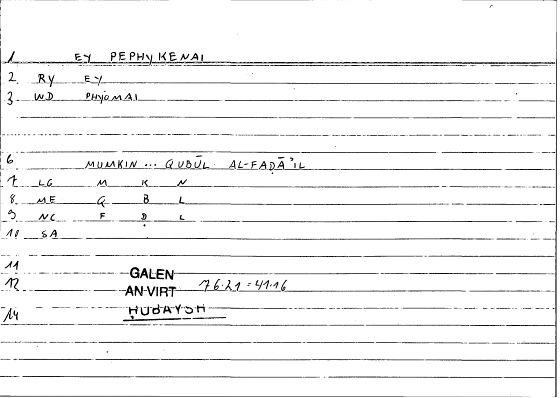 1 EY PEPHYKENAI
2. RY EY
3. WD PHYOMAI
6 MUMKIN ... QUBŪL AL-FAḌĀ'IL
7 LG M K N
8 ME Q B L
9 NC F Ḍ L
10 SA
11 GALEN
12 AN-VIRT 76.21 = 41.16
14 ḤUBAYSH